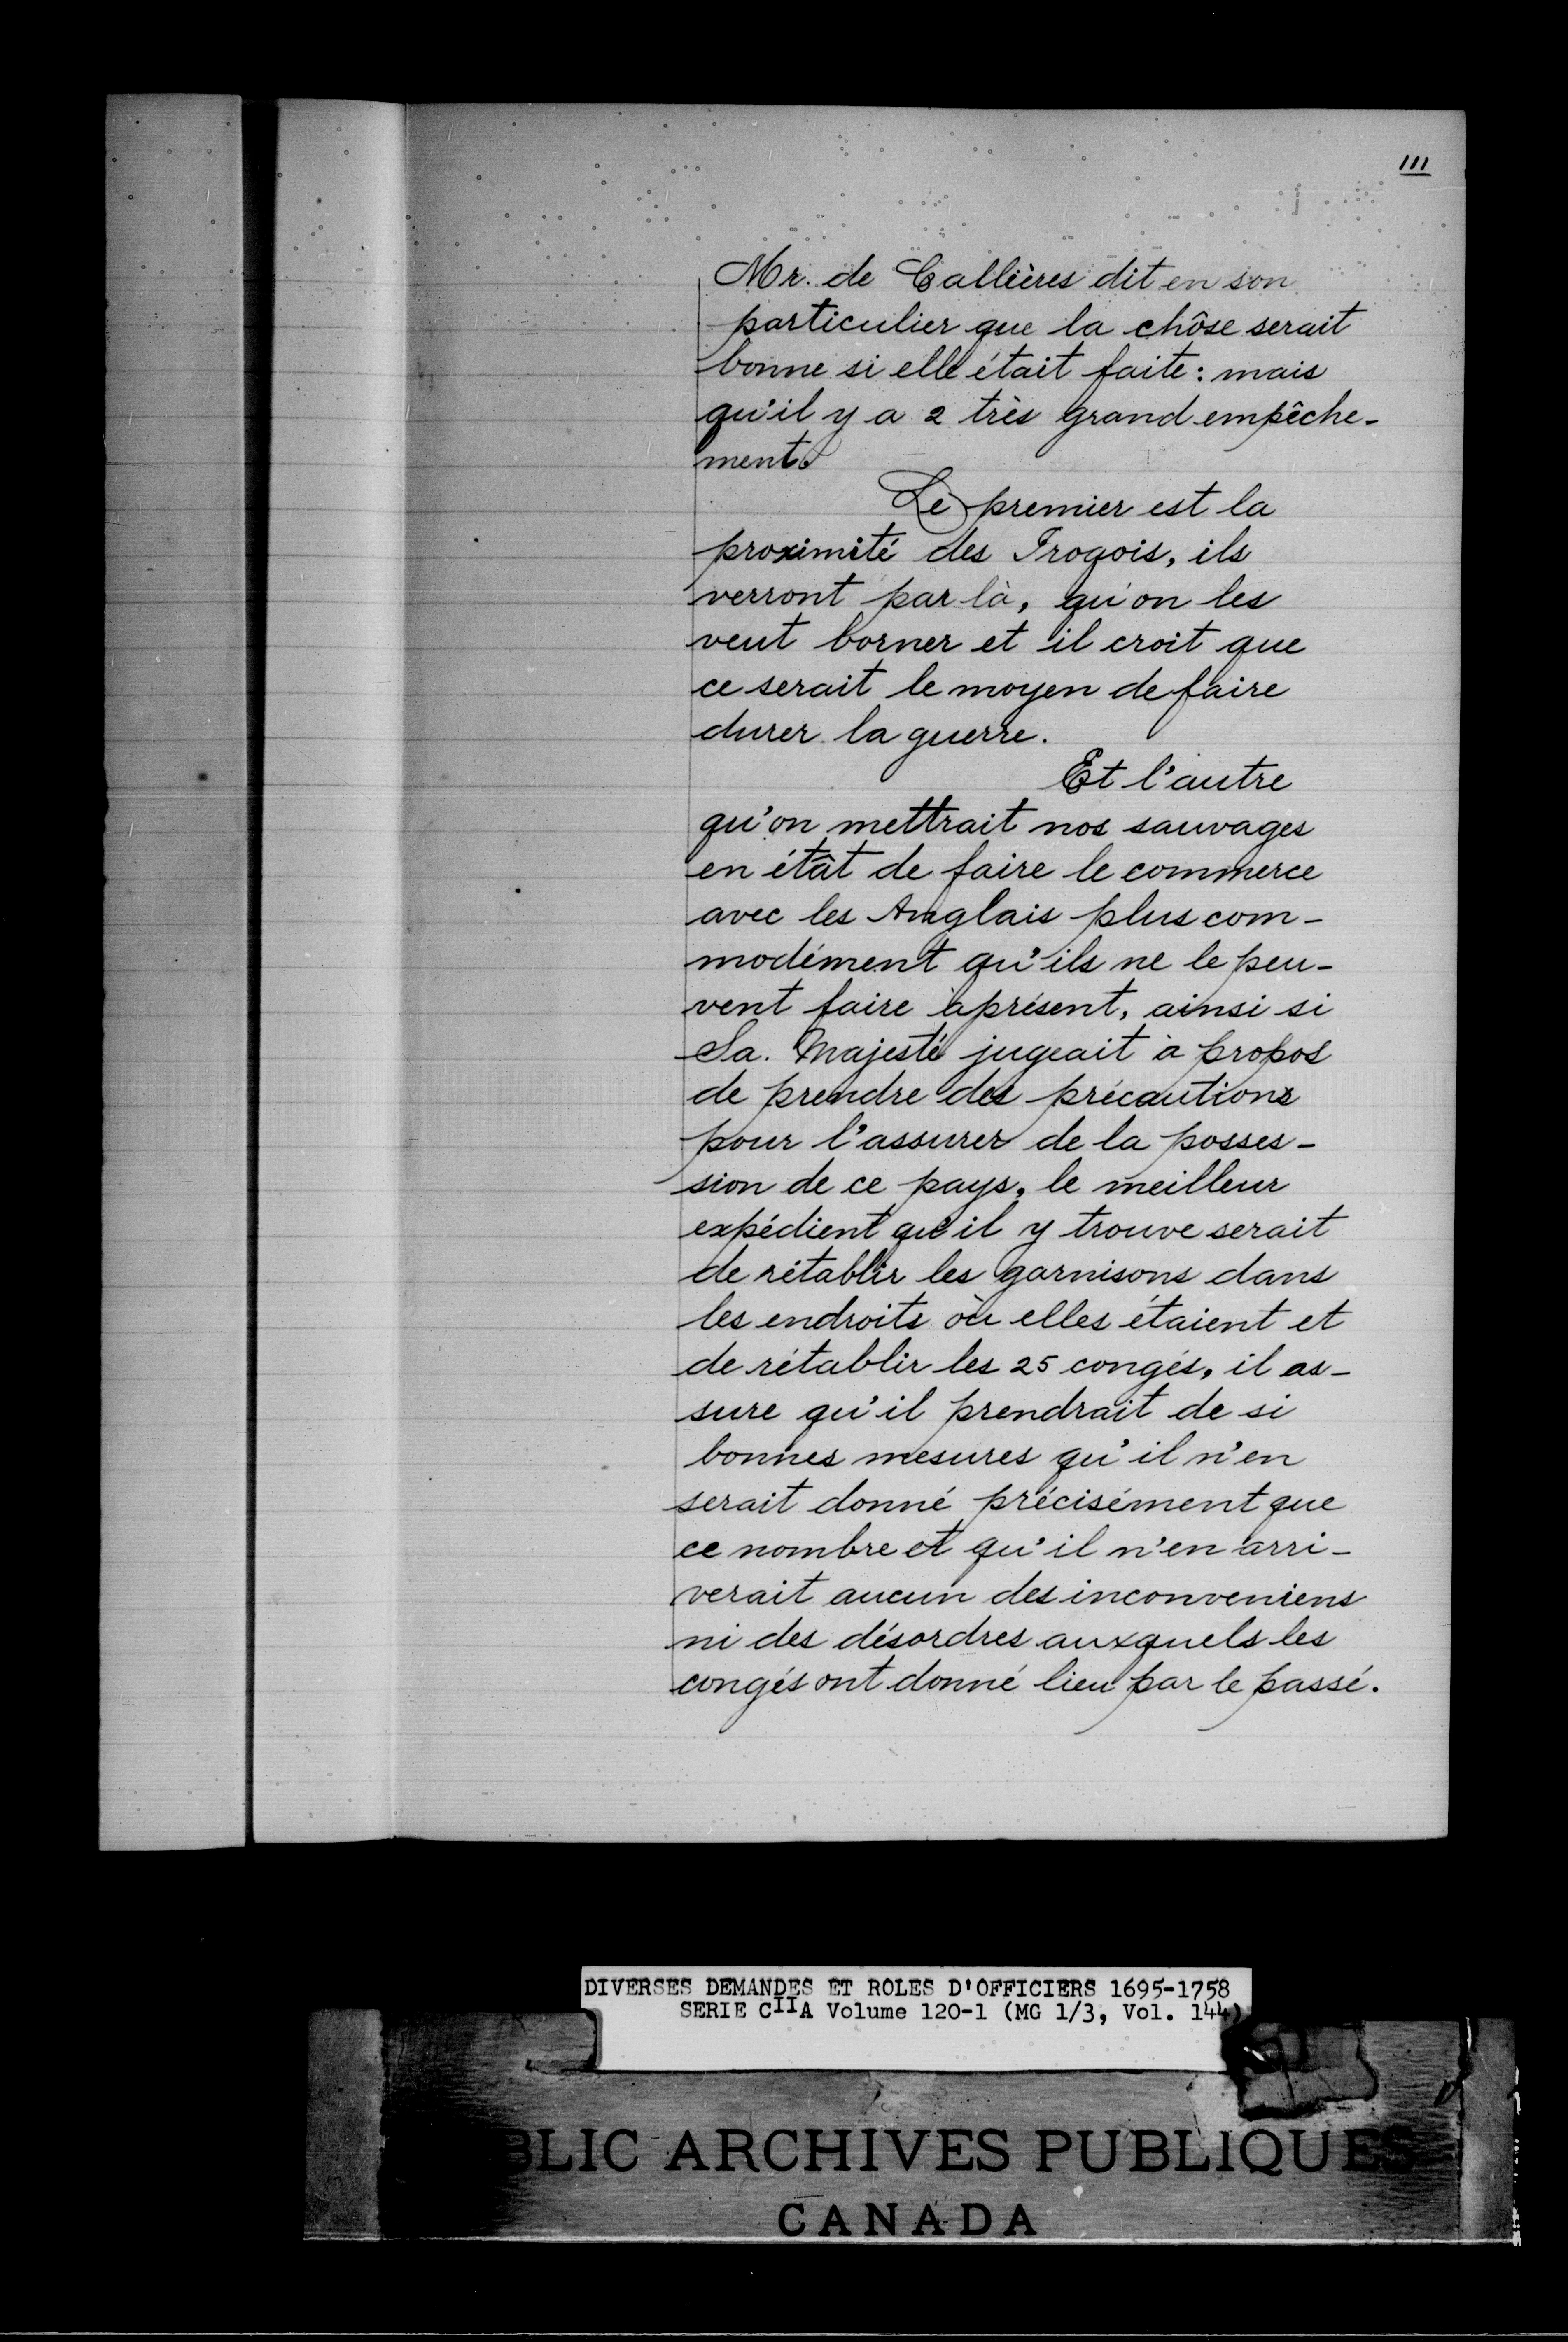 111
Mr. de Callières dit en son
particulier que la chôse serait
bonne si elle était faite: mais
qu'il y a 2 très grand empêche-
ments
Le premier est la
proximité des Iroqois, ils
verront par là, qu'on les
veut borner et il croit que
ce serait le moyen de faire
durer la guerre.
Et l'autre
qu'on mettrait nos sauvages
en étât de faire le commerce
avec les Anglais plus com-
modément qu'ils ne le peu-
vent faire àprésent, ainsi si
Sa. Majesté jugeait à propos
de prendre des précautions
pour l'assurer de la posses-
sion de ce pays, le meilleur
expédient qu'il y trouve serait
de rétablir les garnisons dans
les endroits où elles étaient et
de rétablir les 25 congés, il as-
sure qu'il prendrait de si
bonnes mesures qu'il n'en
serait donné précisément que
ce nombre et qu'il n'en arri-
verait aucun des inconveniens
ni des désordres auxquels les
congés ont donné lieu par le passé.
DIVERSES DEMANDES ET ROLES D'OFFICIERS 1695-1758
SERIE CIIA Volume 120-1 (MG 1/3, Vol. 144)
BLIC ARCHIVES PUBLIQUES
CANADA